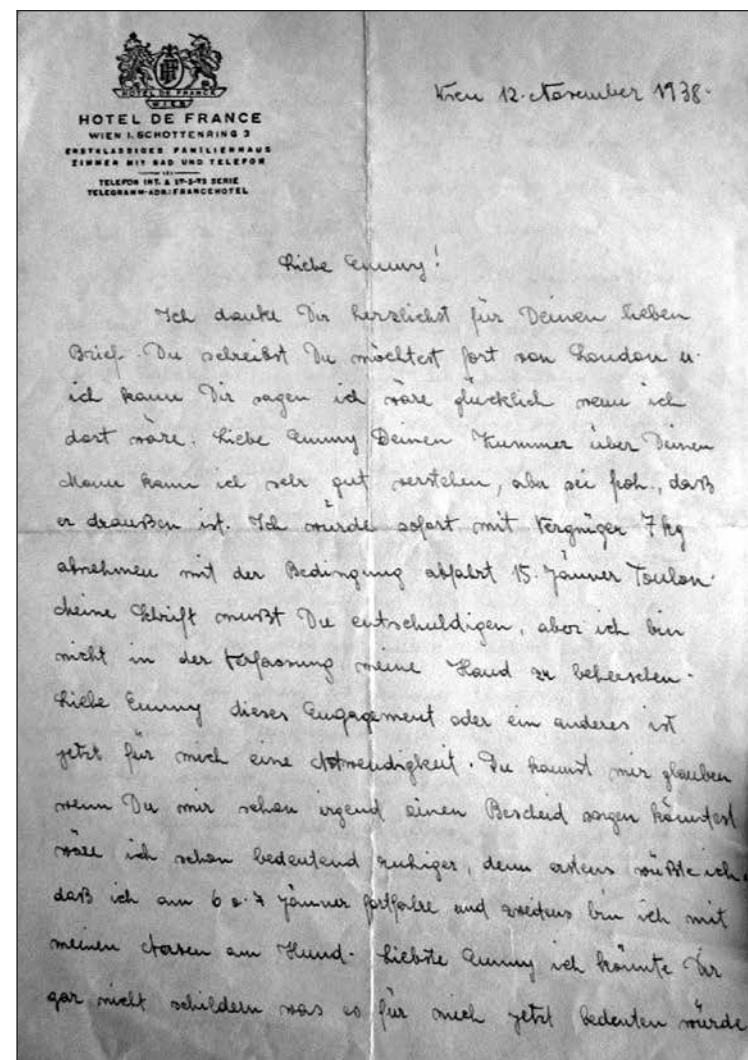 HOTEL DE FRANCE
WIEN
HOTEL DE FRANCE
WIEN I. SCHOTTENRING 3
ERSTKLASSIGES FAMILIENHAUS
ZIMMER MIT BAD UND TELEFON
TELEFON INT. A 17-5-75 SERIE
TELEGRAMM-ADR: FRANCEHOTEL
Wien 12. November 1938.
Liebe Emmy!
Ich danke Dir herzlichst für Deinen lieben
Brief. Du schreibst Du möchtest fort von London u.
ich kann Dir sagen ich wäre glücklich wenn ich
dort wäre. Liebe Emmy Deinen Kummer über Deinen
Mann kann ich sehr gut verstehen, aber sei froh, daß
er draußen ist. Ich würde sofort mit Vergnügen 7 kg
abnehmen mit der Bedingung abfahrt 15. Jänner Toulon.
Meine Schrift mußt Du entschuldigen, aber ich bin
nicht in der Verfassung meine Hand zu beherschen.
Liebe Emmy dieses Engagement oder ein anderes ist
jetzt für mich eine Notwendigkeit. Du kannst mir glauben
wenn Du mir schon irgend einen Bescheid sagen könntest
wäre ich schon bedeutend ruhiger, denn erstens wüßte ich,
daß ich am 6 o. 7 Jänner fortfahre und zweitens bin ich mit
meinen Nerven am Hund. Liebste Emmy ich könnte Dir
gar nicht schildern was es für mich jetzt bedeuten würde